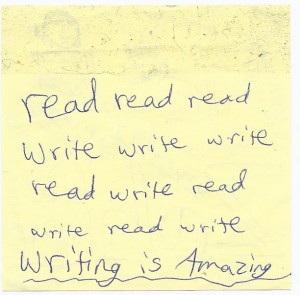 read read read
Write write write
read write read
write read write
Writing is Amazing.